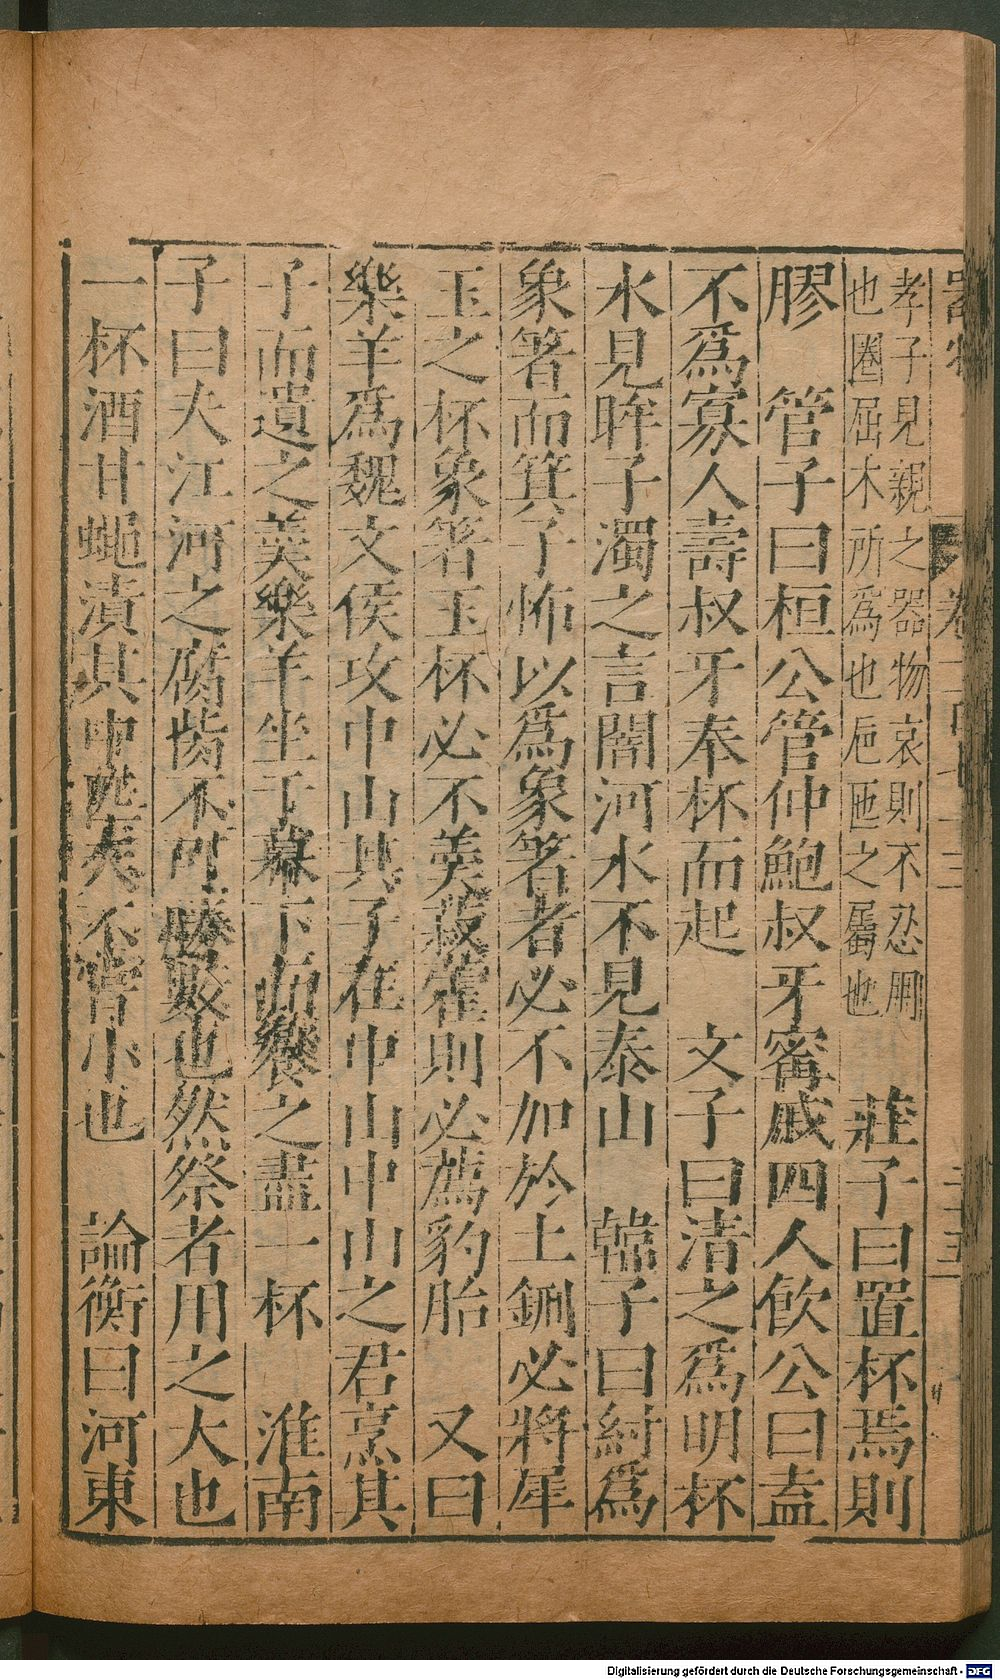 孝子見親之器物哀則不忍用
也圈屈木所爲也巵匜之屬也
莊子曰置杯焉則
膠　管子曰桓公管仲鮑叔牙甯戚四人飲公曰盍
不爲寡人壽叔牙奉杯而起　文子曰清之爲明杯
水見眸子濁之言闇河水不見泰山　韓子曰紂爲
象箸而箕子怖以爲象箸者必不加於土鉶必將犀
玉之杯象箸玉杯必不羮菽藿則必薦豹胎　又曰
樂羊爲魏文侯攻中山其子在中山中山之君烹其
子而遺之羮樂羊坐于幕下而餐之盡一杯　淮南
子曰夫江河之腐胔不可勝數也然祭者用之大也
一杯酒甘蠅漬其中匹夫不嘗小也　論衡曰河東
Digitalisierung gefördert durch die Deutsche Forschungsgemeinschaft - DFG